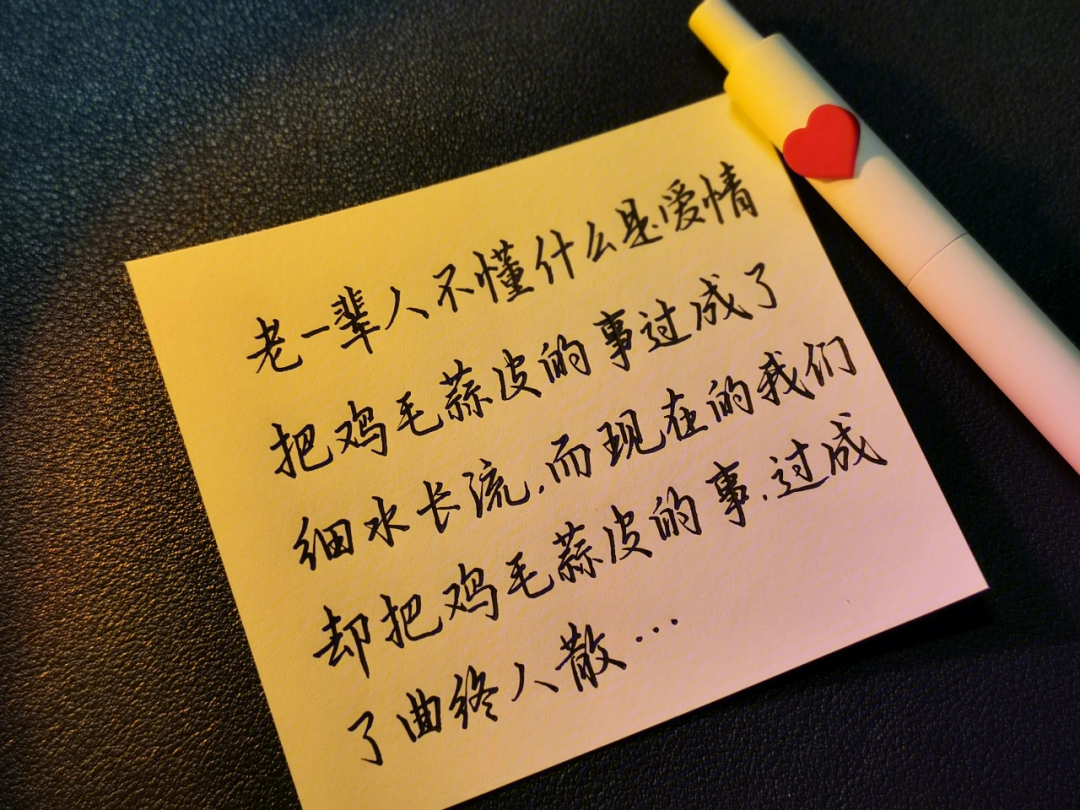 老一辈人不懂什么是爱情
把鸡毛蒜皮的事过成了
细水长流,而现在的我们
却把鸡毛蒜皮的事,过成
了曲终人散…